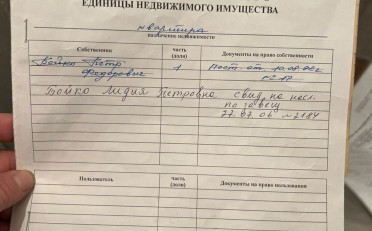 ЕДИНИЦЫ НЕДВИЖИМОГО ИМУЩЕСТВА
квартира
назначение недвижимости
Собственник часть (доли) Документы на право собственности
Бойко Петр 1 Пост. от
Федорович
Бойко Лидия Петровна свид. на насл.
по завещ.
Пользователь часть (доли) Документы на право пользования